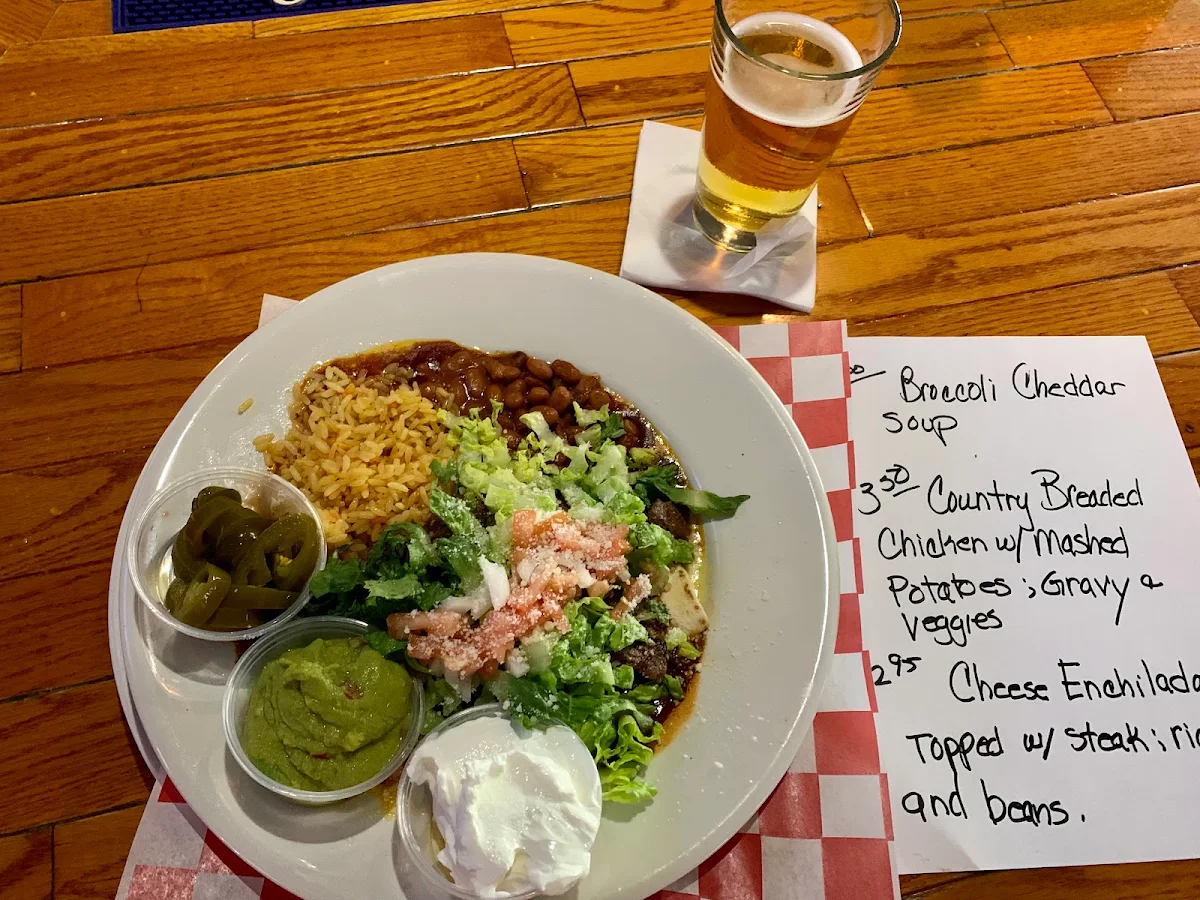 Broccoli Cheddar
Soup
3 50 Country Breaded
Chicken w/ Mashed
Potatoes ; Gravy &
Veggies
2 95 Cheese Enchilada
Topped w/ steak ;
and beans.